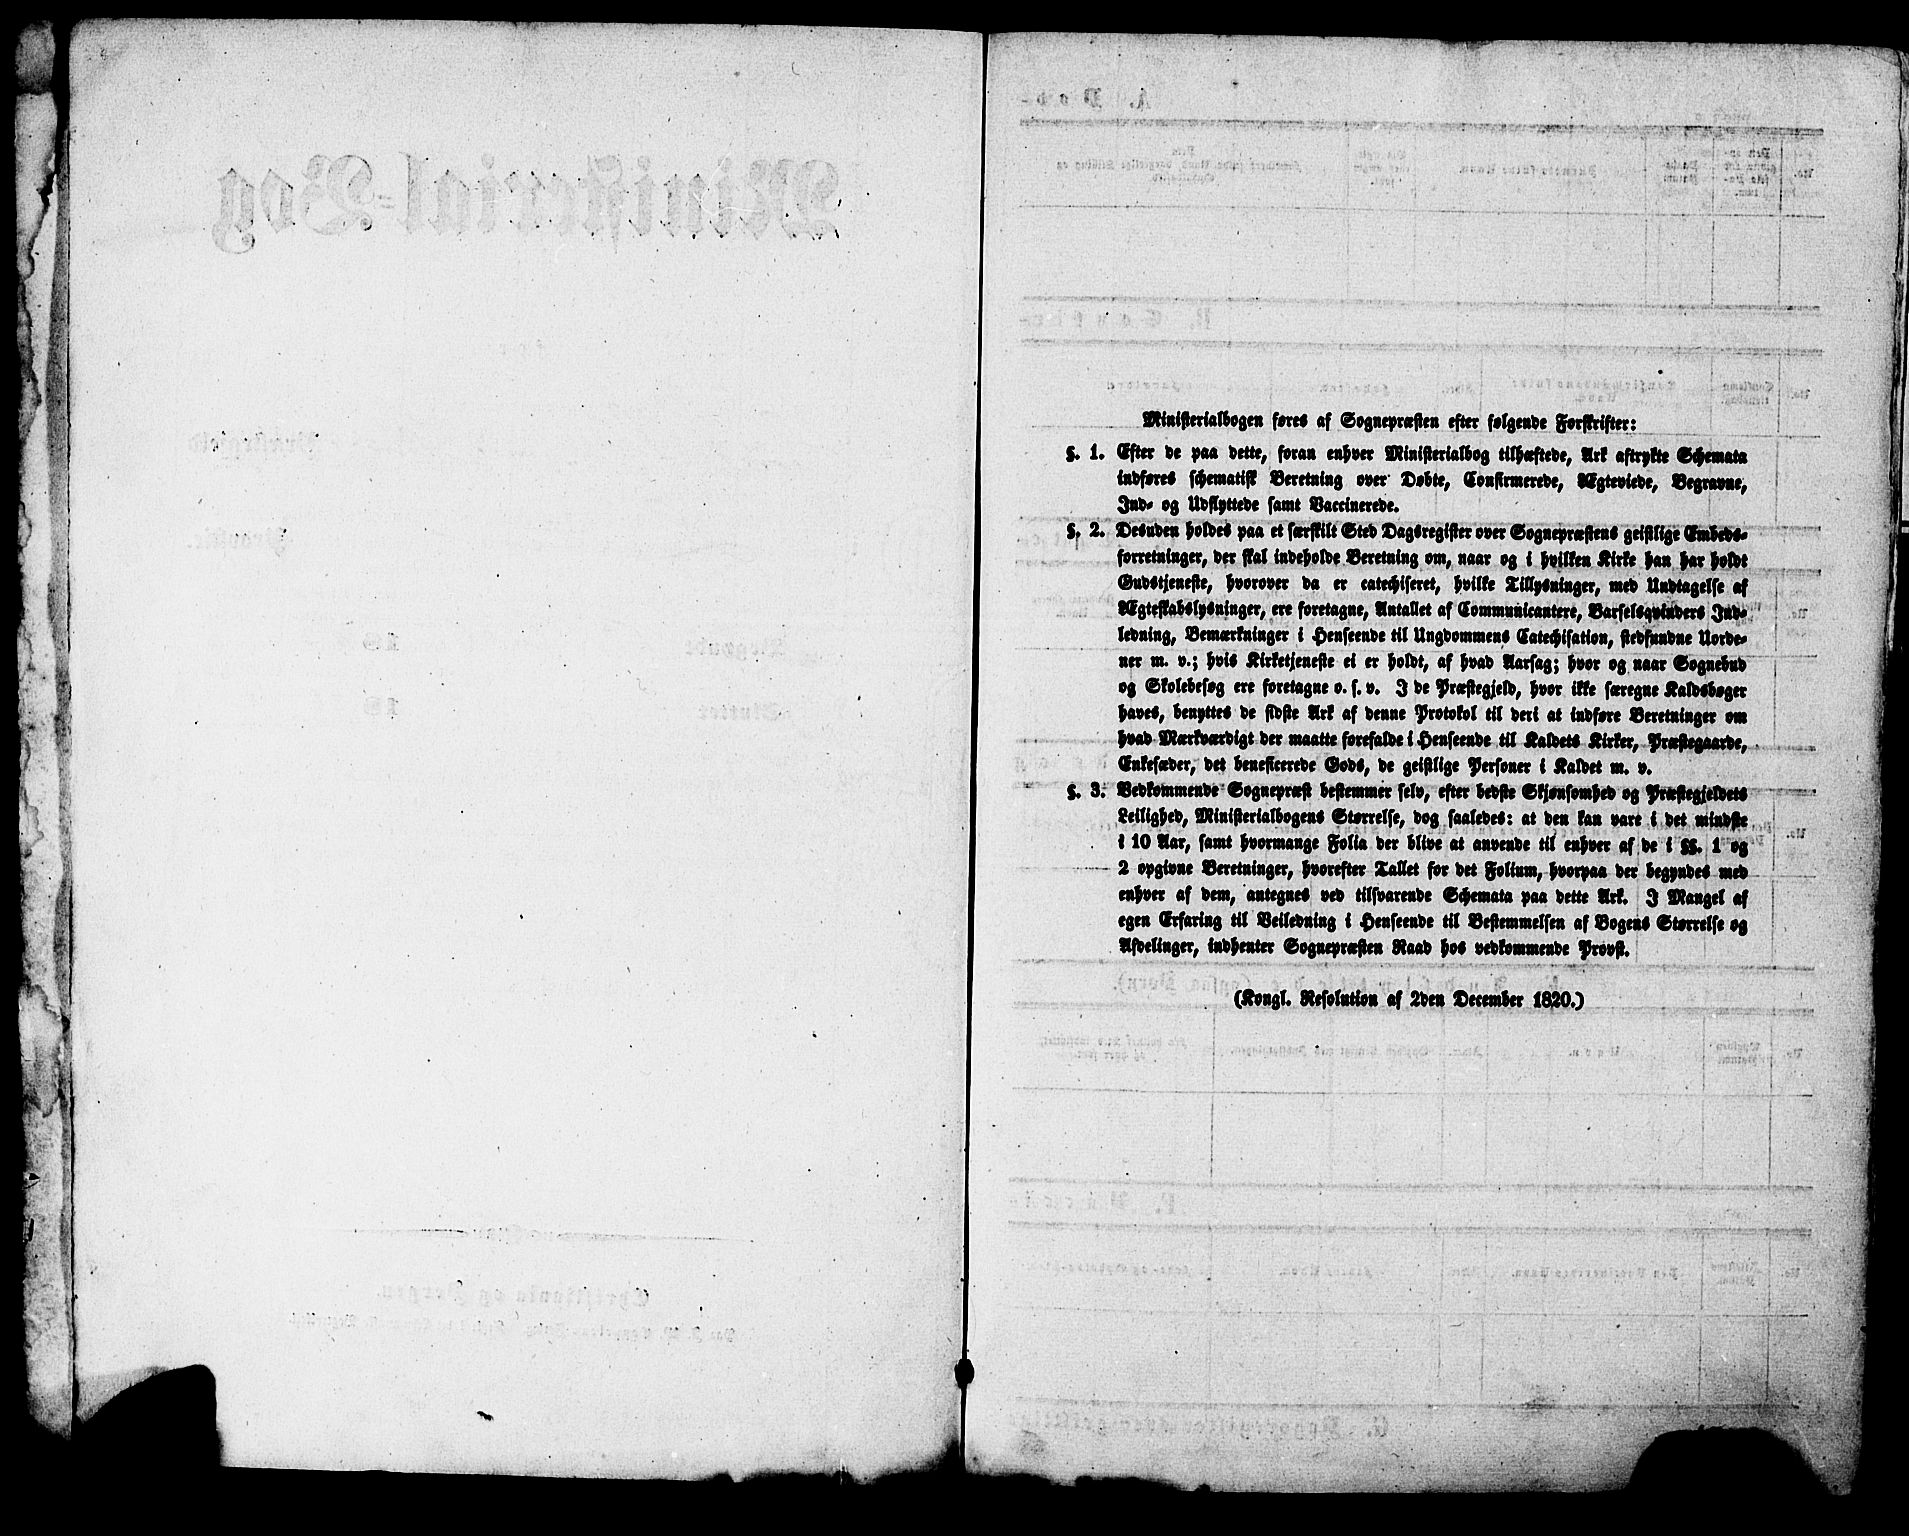 Ministerialbogen føres af Sognepræsten efter følgende Forskrifter:
§. 1. Efter de paa dette, foran enhver Ministerialbog tilhæftede, Ark aftrykte Schemata
indføres schematisk Beretning over Døbte, Confirmerede, Ægteviede, Begravne,
Ind- og Udflyttede samt Vaccinerede.
§. 2. Desuden holdes paa et særskilt Sted Dagsregister over Sognepræstens geistlige Embeds-
forretninger, der skal indeholde Beretning om, naar og i hvilken Kirke han har holdt
Gudstjeneste, hvorover da er catechiseret, hvilke Tillysninger, med Undtagelse af
Ægteskabslysninger, ere foretagne, Antallet af Communicantere, Barselsqvinders Ind-
ledning, Bemærkninger i Henseende til Ungdommens Catechisation, stedfundne Uorde-
ner m. v.; hvis Kirketjeneste ei er holdt, af hvad Aarsag; hvor og naar Sognebud
og Skolebesøg ere foretagne o. s. v. I de Præstegjeld, hvor ikke særegne Kaldsbøger
haves, benyttes de sidste Ark af denne Protokol til deri at indføre Beretninger om
hvad Mærkværdigt der maatte forefalde i Henseende til Kaldets Kirker, Præstegaarde,
Enkesæder, det beneficerede Gods, de geistlige Personer i Kaldet m. v.
§. 3. Vedkommende Sognepræst bestemmer selv, efter bedste Skjønsomhed og Præstegjeldets
Leilighed, Ministerialbogens Størrelse, dog saaledes: at den kan vare i det mindste
i 10 Aar, samt hvormange Folia der blive at anvende til enhver af de i §§. 1 og
2 opgivne Beretninger, hvorefter Tallet for det Folium, hvorpaa der begyndes med
enhver af dem, antegnes ved tilsvarende Schemata paa dette Ark. I Mangel af
egen Erfaring til Veiledning i Henseende til Bestemmelsen af Bogens Størrelse og
Afdelinger, indhenter Sognepræsten Raad hos vedkommende Provst.
(Kongl. Resolution af 2den December 1820.)